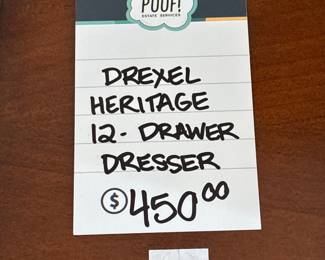 POOF!
ESTATE SERVICES
DREXEL
HERITAGE
12-DRAWER
DRESSER
$450.00